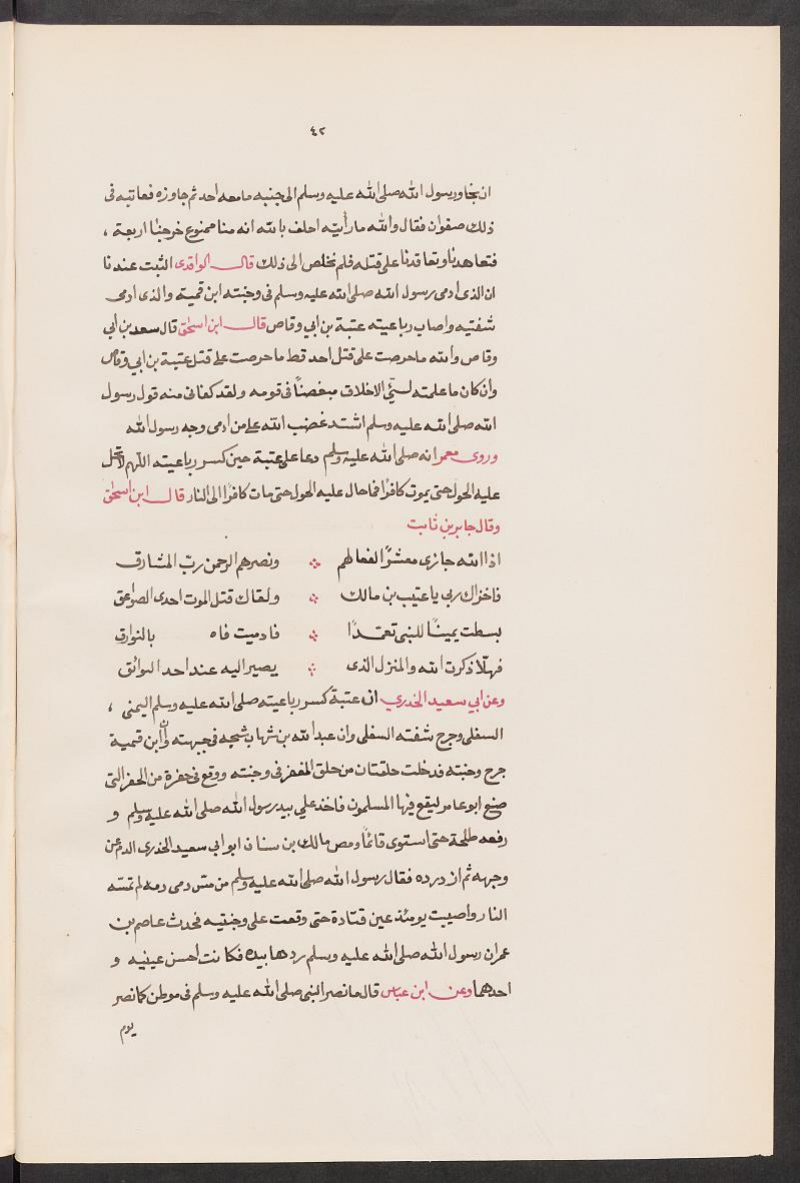 ٤٢
ان نجا ورسول الله صلى الله عليه وسلم الى جنبه مامعه احد ثم جاوزه فعاتبه فى
ذلك صفوان فقال والله ما رأيته احلف بالله انه منا ممنوع خرجنا اربعة ،
فتعاهدنا وتعاقدنا على قتله فلم نخلص الى ذلك قال الواقدى الثبت عندنا
ان الذى ادمى رسول الله صلى الله عليه وسلم فى وجنته ابن قمية والذى ادمى
شفتيه واصاب رباعيته عتبة بن ابي وقاص قال ابن اسحٰق قال سعد بن ابي
وقاص والله ما حرصت على قتل احد قط ما حرصت على قتل عتبة بن ابي وقاص
وان كان ما علمته لسيّئ الاخلاق مبغضًا فى قومه ولقد كفانى منه قول رسول
الله صلى الله عليه وسلم اشتد غضب الله على من ادمى وجه رسول الله
وروى معمر انه صلى الله عليه وسلم دعا على عتبة حين كسر رباعيته اللهم لا تحل
عليه الحول حتى يموت كافرًا فما حال عليه الحول حتى مات كافرًا الى النار قال ابن اسحٰق
وقال جابر بن ثابت
اذا الله جازى معشرًا لفعالهم ونصرهم الرحمن ربّ المشارق
فاخزاك ربى يا عتيب بن مالك ولقاك قتل الموت احدى الصواعق
بسطت يمينًا للنبى تعمدًا فادميت فاه بالنوارق
فهلّا ذكرت الله والمنزل الذى يصير اليه عند احد البوائق
وعن ابي سعيد الخدري ان عتبة كسر رباعيته صلى الله عليه وسلم اليمنى ،
السفلى وجرح شفته السفلى وان عبد الله بن شهاب شجه فى جبهته وأن ابن قمية
جرح وجنته فدخلت حلقتان من حلق المغفر فى وجنته ووقع فى حفرة من الحفر التى
صنع ابو عامر ليقع فيها المسلمون فاخذ علي بيد رسول الله صلى الله عليه وسلم و
رفعه طلحة حتى استوى قائمًا ومص مالك بن سنان ابو ابي سعيد الخدرى الدم عن
وجهه ثم ازدرده فقال رسول الله صلى الله عليه وسلم من مسّ دمى دمه لم تمسّه
النار واصيبت يومئذ عين قتادة حتى وقعت على وجنتيه فحدث عاصم بن
عمران رسول الله صلى الله عليه وسلم ردها بيده فكانت احسن عينيه و
احدهما وعن ابن عباس قال ما نصر النبى صلى الله عليه وسلم فى موطن كما نصر
يوم